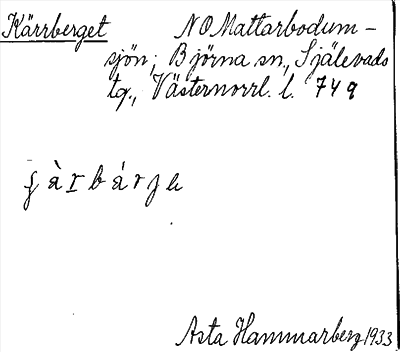 Kärrberget NO Mattarbodum-
sjön; Björna sn., Själevads
tg., Västernorrl. l. 749
Asta Hammarberg 1933